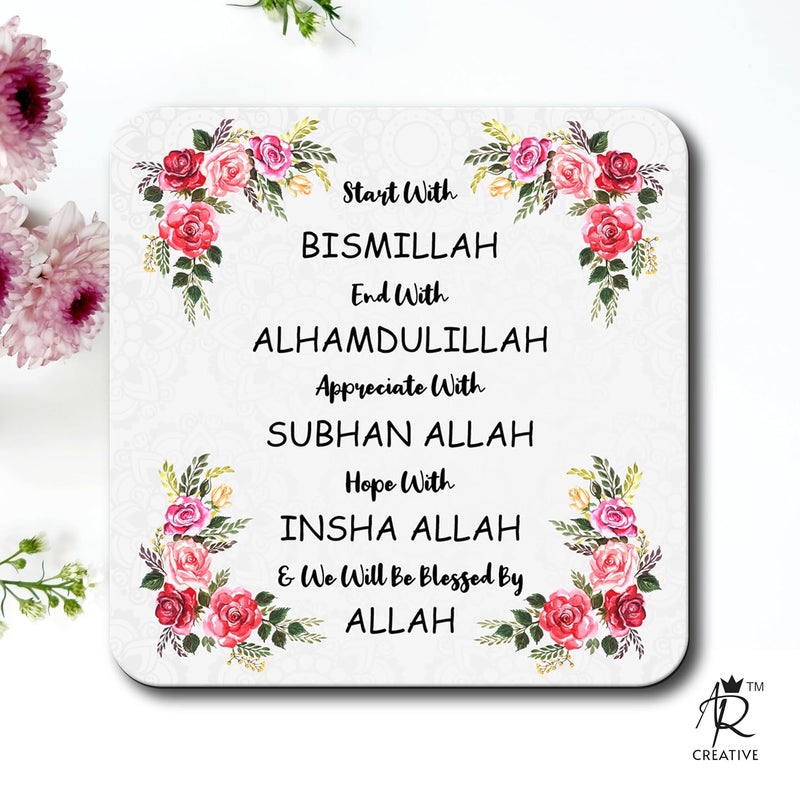 Start With
BISMILLAH
End With
ALHAMDULILLAH
Appreciate With
SUBHAN ALLAH
Hope With
INSHA ALLAH
& We Will Be Blessed By
ALLAH
AR TM
CREATIVE